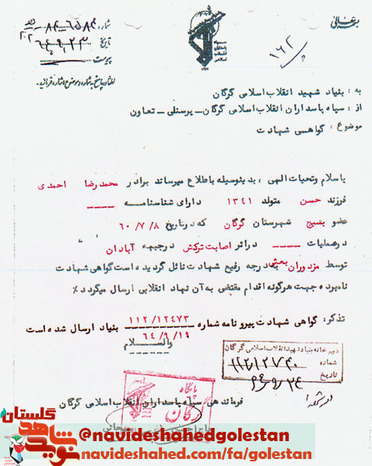 شماره ۸۴-۶۵۸۴
تاریخ ۶۴/۹/۲۳
پیوست
۱۶۲
به : بنیاد شهید انقلاب اسلامی گرگان
از : سپاه پاسداران انقلاب اسلامی گرگان - پرسنلی - تعاون
موضوع : گواهی شهادت
باسلام وتحیات الهی، بدینوسیله باطلاع میرساند برادر محمدرضا احمدی
فرزند حسن متولد ۱۳۴۱ دارای شناسنامه
عضو بسیج شهرستان گرگان که درتاریخ ۶۰/۷/۸
درعملیات دراثر اصابت ترکش درجبهه آبادان
توسط مزدوران بعثی بدرجه رفیع شهادت نائل گردیده است گواهی شهادت
نامبرده جهت هرگونه اقدام مقتضی به آن نهاد انقلابی ارسال میگردد
تذکر: گواهی شهادت پیرو نامه شماره ۱۱۲/۱۲۴۷۳ بنیاد ارسال شده است
۶۴/۹/۱۹
والسلام
دبیرخانه بنیاد شهید انقلاب اسلامی گرگان
شماره
تاریخ
فرماندهی سپاه پاسداران انقلاب اسلامی گرگان
نوید شاهد گلستان
@navideshahedgolestan
navideshahed.com/fa/golestan